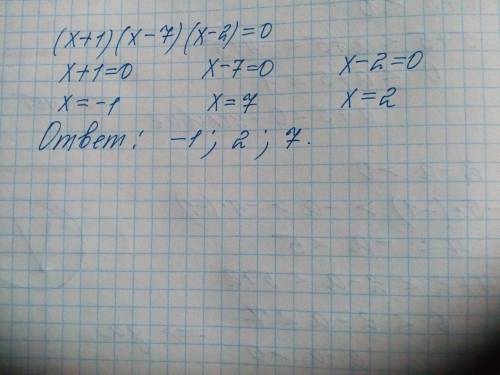 (x+1)(x-7)(x-2)=0
x+1=0 x-7=0 x-2=0
x=-1 x=7 x=2
Ответ: -1; 2; 7.